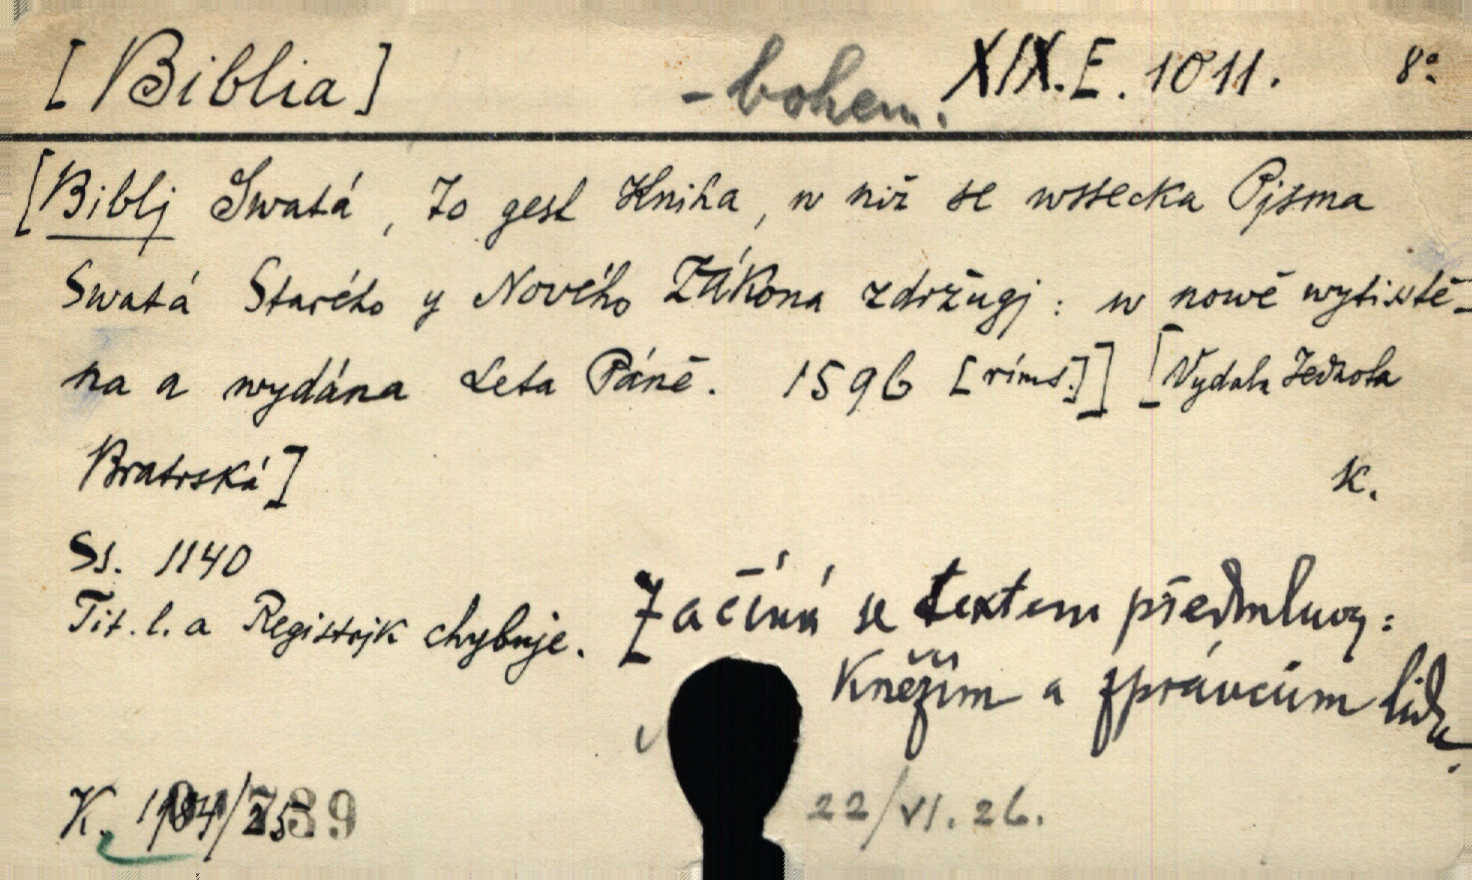 [Biblia] -bohem. XIX.E.1011. 8°
[Biblj Swatá, To gest Kniha, w niž se wssecka Pjsma
Swatá Starého y Nového Zákona zdržugj: w nowě wytisště-
na a wydána Leta Páně. 1596 [rims.]] [Vydala Jednota
Bratrská] K.
Ss. 1140
Tit. l. a Registrjk chybuje. Začíná se textem předmluvy:
Kněžím a zprávcům lidu.
K. 22/VI.26.